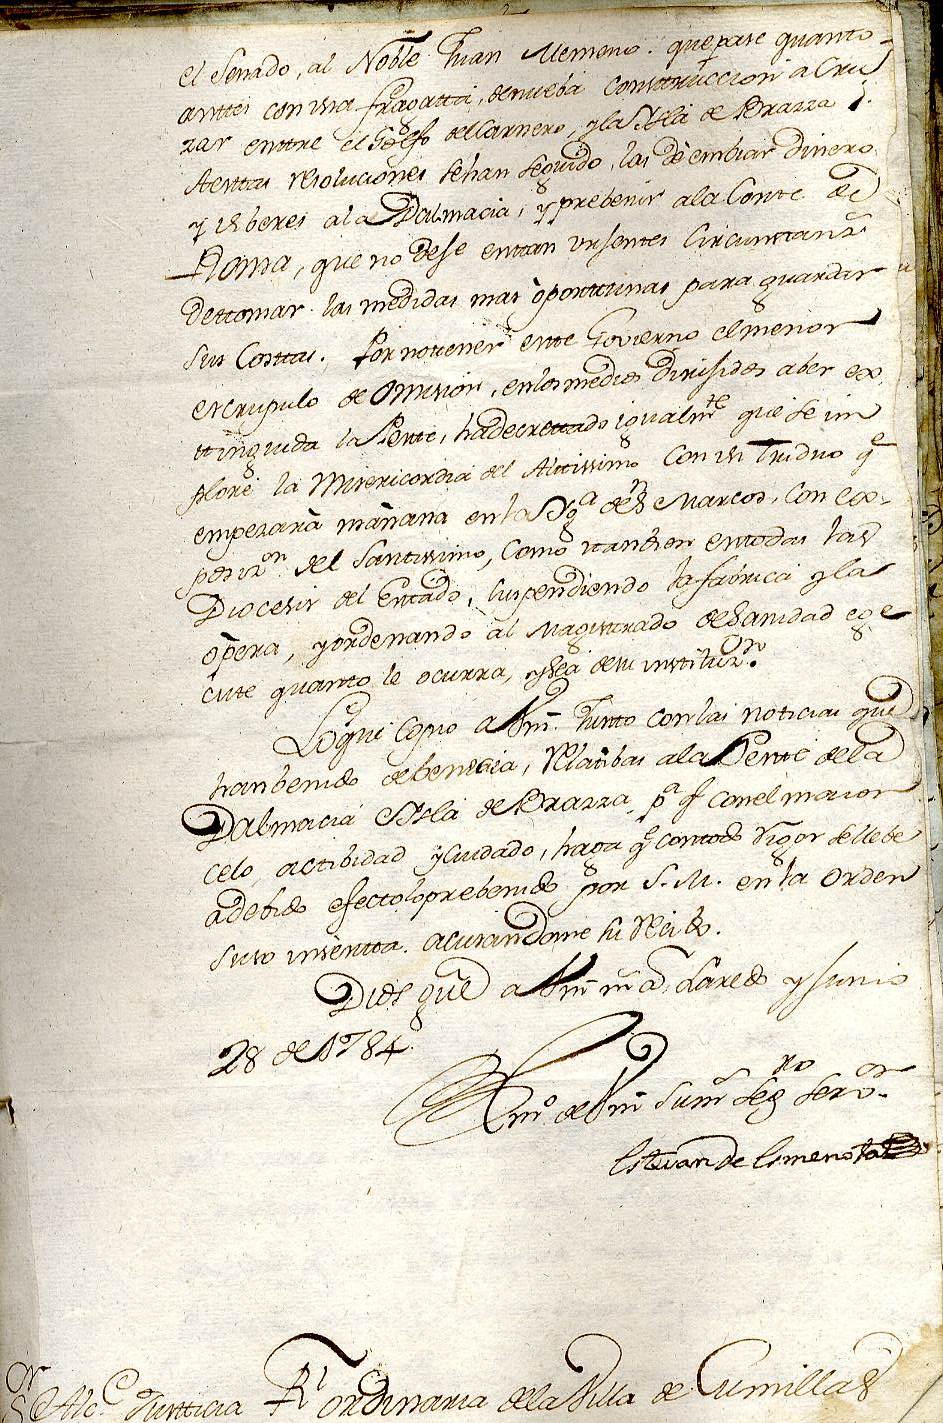 el Senado, al Noble Juan Memeno. que pase quanto
anttes con una fragatta, de nueba construccion a Cru
zar enttre el Golfo del Carnero, y la Isla de Brazza. 
A estas resoluciones se han seguido, las de embiar dinero
y viberes a la Dalmacia, y prebenir a la Corte de
Roma, que no dese en tan urgentes circunstanz.s
de ttomar las medidas mas òporttunas para guardar
sus Costtas. Por no ttener este Govierno el menor
escrupulo de omision, en los medios dirijidos a ber ex
ttinguida la Peste, ha decrettado igualm.te que se im
plore la Misericordia del Altissimo con un Triduo q.e
empezarà mañana en la Yg.a de S.n Marcos, con ex-
posiz.on del Santissimo, como ttanbien en todas las
Diocesis del Estado, suspendiendo la fabrica y la
òpera, y ordenando al Magistrado de Sanidad ege
cute quanto le ocurra, y sea de su instituz.on
Lo que copio a Vm. Junto con las noticias que
han benido de benecia, relatibas a la Peste de la
Dalmacia e Isla de Brazza, p.a q.e con el maior
celo, actibidad y cuidado, haga q.e con todo rigor se llebe
a debido efecto lo prebenido por S.M. en la Orden
suso inserta. acusandome su recibo.
Dios gue a Vm m.s a.s Laredo y Junio
28 de 1784.
B l m.o de Vm su m.s seg.ro serv.or
Estevan de Esmenota
S.or Alc.e Justicia R.l ordinaria de la Villa de Cumillas